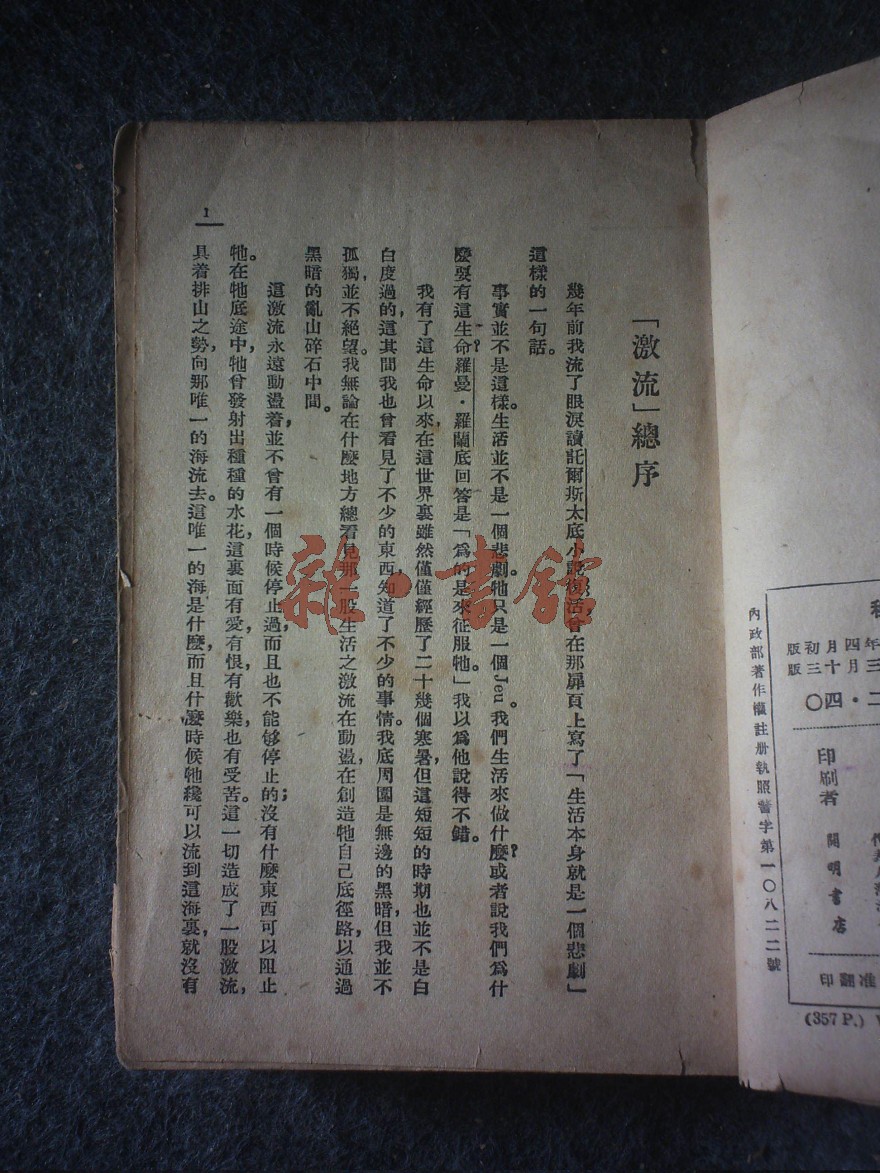 年四月初版
三月十三版
二・四〇
印刷者　開明書店
准翻印
(357 P.)
內政部著作權註册執照警字第一〇八二二號
「激流」總序
幾年前我流了眼淚讀託爾斯太底小說復活，曾在那扉頁上寫了「生活本身就是一個悲劇」
這樣的一句話。
事實並不是這樣。生活並不是一個悲劇。牠只是一個Jeu。我們生活來做什麼？或者說我們爲什
麼要有這生命？羅曼・羅蘭底回答是「爲的是來征服牠。」我以爲他說得不錯。
我有了這生命以來，在這世界裏雖然僅僅經歷了二十幾個寒暑，但這短短的時期也並不是白
白度過的，這其間我也曾看見了不少的東西，知道了不少的事情。我底周圍是無邊的黑暗，但我並不
孤獨，並不絕望。我無論在什麼地方總看見那一股生活之激流在動盪，在創造牠自己底徑路，以通過
黑暗的亂山碎石中間。
這激流永遠動盪着，並不曾有一個時候停止過，而且也不能够停止的；沒有什麼東西可以阻止
牠。在牠底途中，牠曾發射出種種的水花，這裏面有愛，有恨，有歡樂，也有受苦。這一切造成了一股激流，
具着排山之勢，向那唯一的海流去。這唯一的海是什麼，而且什麼時候牠纔可以流到這海裏，就沒有
1
雜・書館